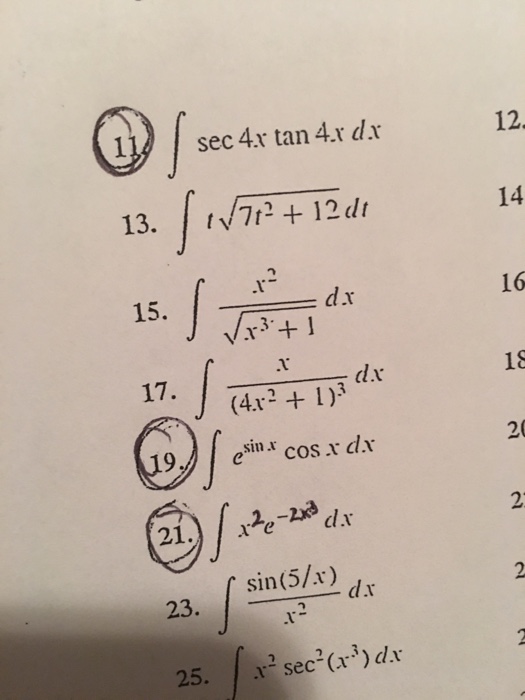 11. ∫ sec 4x tan 4x dx
12.
13. ∫ t√7t² + 12 dt
14
15. ∫ x²/√x³ + 1 dx
16
17. ∫ x/(4x² + 1)³ dx
18
19. ∫ e^sin x cos x dx
20
21. ∫ x²e^−2x³ dx
2
23. ∫ sin(5/x)/x² dx
2
25. ∫ x² sec²(x³) dx
2